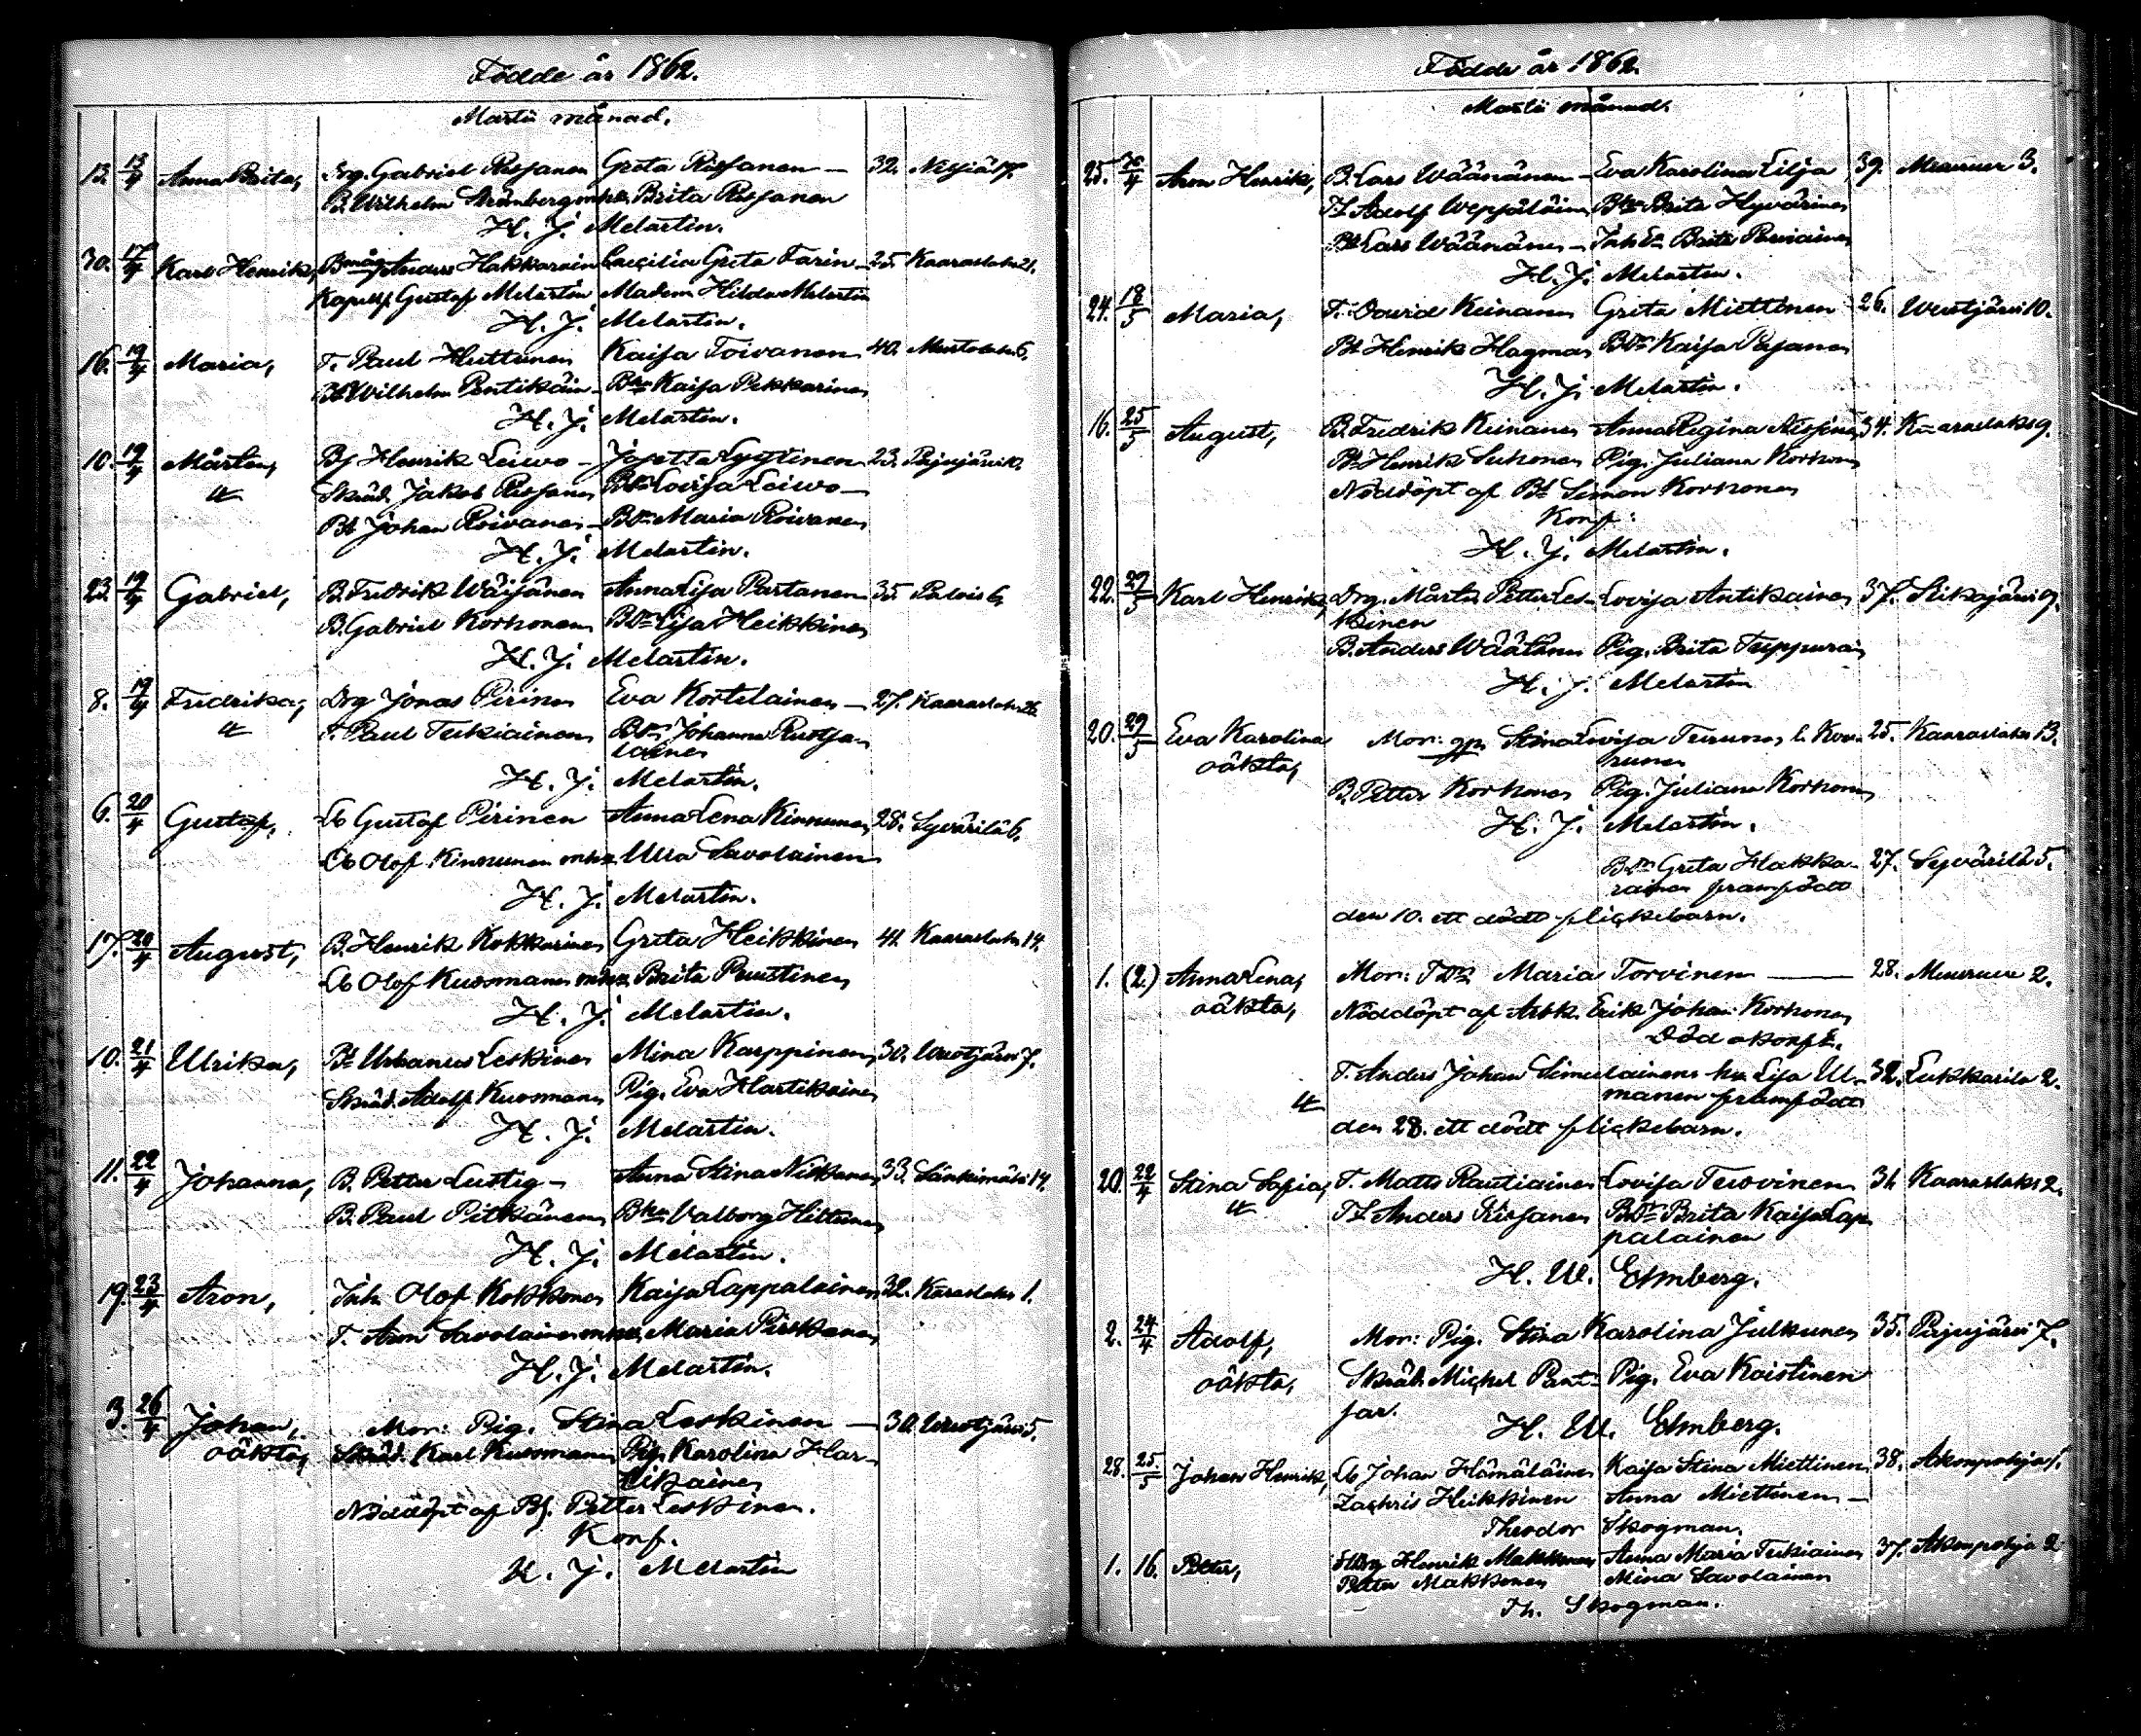 Födde år 1862.
Martii månad.
13. 13/4 Anna Brita, Drg. Gabriel Rissanen Greta Rissanen — 32. Nilsiä 17.
B. Wilhelm Strömberg m. h. Brita Rissanen
H. J. Melartin.
30. 17/4 Karl Henrik, Bmåg Anders Hakkarain Caecilia Greta Farin — 25. Kaaraslaks 21.
Kapell. Gustaf Melartin Madem. Hilda Melartin
H. J. Melartin.
16. 19/4 Maria, T. Paul Huttunen Kaisa Toivanen 40. 6.
Bs Wilhelm Pentikäin Bhu Kaisa Pekkarinen
H. J. Melartin.
10. 19/4 Mårten, Bs Henrik Leiwo — Josefta Lyytinen 23.
Skräd. Jakob Rissanen Bdr Lovisa Leiwo —
Bs Johan Roivanen — Bdr Maria Roivanen
H. J. Melartin.
23. 19/4 Gabriel, B. Fredrik Wäisänen Anna Lisa Partanen 35. Palois 6.
B. Gabriel Korhonen Bdr Lisa Heikkinen
H. J. Melartin.
8. 19/4 Fredrika, Drg Jonas Pirinen Eva Kortelainen — 27. Kaaraslaks 26.
T. Paul Tuikiainen Bdr Johanna Ruotsa-
lainen
H. J. Melartin.
6. 20/4 Gustaf, Lb Gustaf Pirinen Anna Lena Kinnunen 28. Syvärilä 6.
Lb Olof Kinnunen m. h. Ulla Savolainen
H. J. Melartin.
17. 20/4 August, B. Henrik Kokkarinen Greta Heikkinen 41. Kaaraslaks 14.
Lb Olof Kuosmanen m. h. Brita Puustinen
H. J. Melartin.
10. 21/4 Ulrika, Bs Urbanus Leskinen Mina Karppinen 30. Wuotjärvi 7.
Skräd. Adolf Kuosmanen Pig. Eva Hartikainen
H. J. Melartin.
11. 22/4 Johanna, B. Petter Lustig — Anna Stina Niskanen 33. Länkimäki 14.
B. Paul Pitkänen Bhu Valborg Hiltunen
H. J. Melartin.
19. 23/4 Aron, Inh. Olof Kokkonen Kaisa Lappalainen 32. Karaslaks 1.
T. Aron Savolainen m. h. Maria Pirskanen
H. J. Melartin.
3. 26/4 Johan, Mor: Pig. Stina Leskinen — 30. Wuotjärvi 5.
oäkta, Skräd. Karl Kuosmanen Pig. Karolina Har-
tikainen
Nöddöpt af Bs. Petter Leskinen.
Konf.
H. J. Melartin
Födde år 1862.
Martii månad.
25. 30/4 Aron Henrik, B. Lars Wäänänen — Eva Karolina Lilja 39. Muuruvesi 3.
Ts Adolf Wepsäläinen Bhu Brita Hyvärinen
Bs Lars Wäänänen — Inh. Brita
H. J. Melartin.
24. 18/5 Maria, T. David Keinanen Greta Miettinen 26. Wuotjärvi 10.
Bs Henrik Hagman Bdr Kaisa
H. J. Melartin.
16. 25/5 August, B. Fredrik Keinanen Anna Regina Nissinen 34. Kaaraslaks 9.
Bs Henrik Suhonen Pig. Juliana Korhonen
Nöddöpt af Bs Simon Korhonen
Konf:
H. J. Melartin.
22. 27/5 Karl Henrik, Drg. Mårten Petter Les- Lovisa Antikainen 37. Siikajärvi 9.
kinen
B. Anders Wäätänen Pig. Brita Trippurain
H. J. Melartin
20. 29/5 Eva Karolina Mor: Stina Lovisa Teerunen 25. Kaaraslaks 13.
oäkta,
B. Petter Korhonen Pig. Juliana Korhonen
H. J. Melartin.
Bdr Greta Hakka- 27. Syvärilä 5.
rainen framfödt
den 10. ett dödt flickebarn.
1. (2.) Anna Lena, Mor: Tdr Maria Torvinen — 28. Muuruvesi 2.
oäkta, Nöddöpt af Arbk. Erik Johan Korhonen
Död okonf.
T. Anders Johan Simulainens hu. Lisa Ul- 32. Lukkarila 2.
manen framfödt
den 28. ett dödt flickebarn.
20. 22/4 Stina Sofia, T. Matts Rautiainen Lovisa Tervinen 31. Kaaraslaks 2.
Ts Anders Rissanen Bdr Brita Kaisa Lap-
palainen
H. W. Elmberg.
2. 24/4 Adolf, Mor: Pig. Stina Karolina Julkunen 35. Pajujärvi 7.
oäkta, Skräd. Michel Pant- Pig. Eva Kaistinen
sar.
H. W. Elmberg.
28. 25/5 Johan Henrik, Lb Johan Hämäläinen Kaisa Stina Miettinen 38. Akonpohja 1.
Zachris Heikkinen Anna Miettinen —
Theodor Skogman.
1. 16. Petter, Henrik Makkonen Anna Maria Tuikiainen 37. Akonpohja 2
Petter Makkonen Mina Savolainen
Th. Skogman.